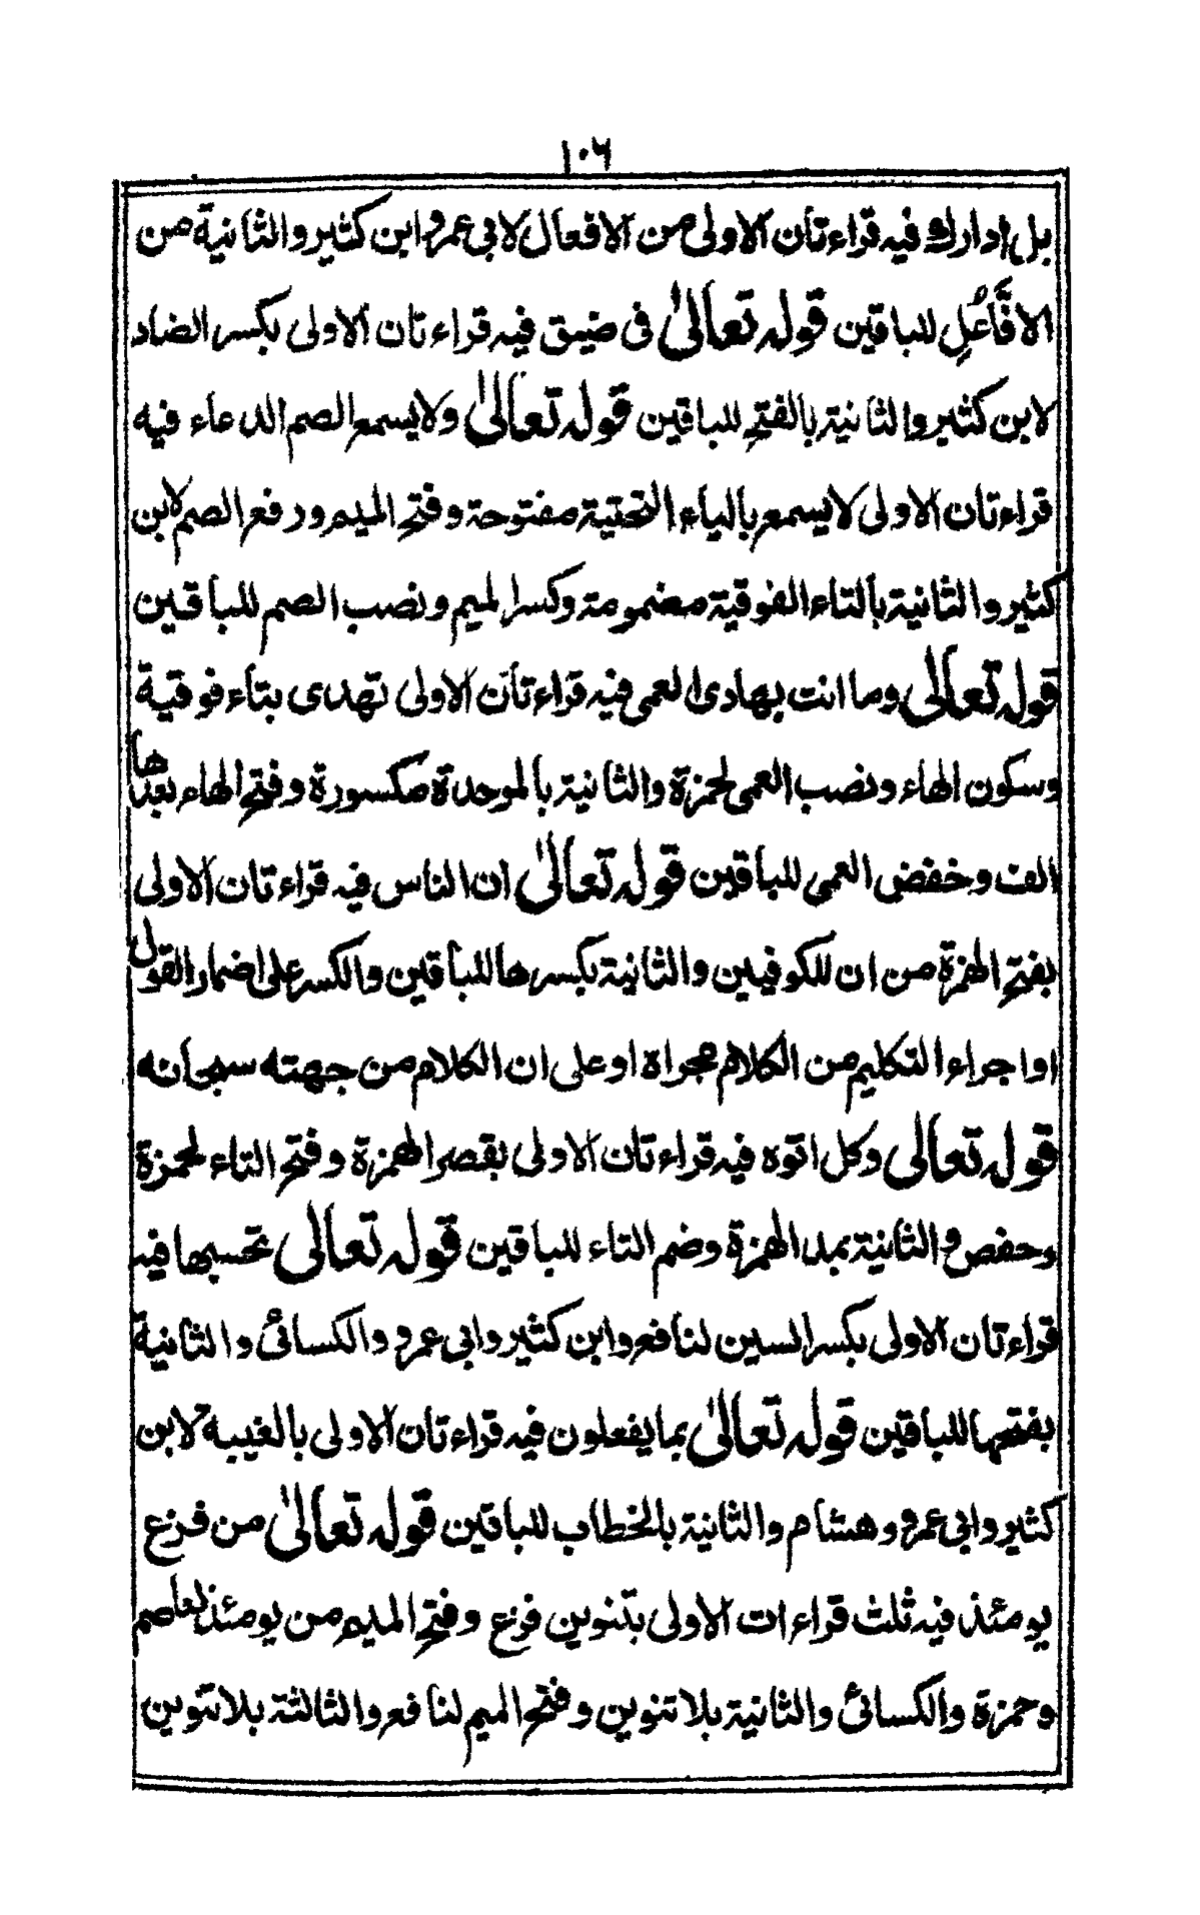 ١٠٦
بل ادارك فيه قراءتان الاولى من الافعال لابى عمرو ابن كثير والثانية من
الافَّاعُلِ للباقين قوله تعالىٰ فى ضيق فيه قراءتان الاولى بكسر الضاد
لابن كثير والثانية بالفتح للباقين قوله تعالىٰ ولا يسمع الصم الدعاء فيه
قراءتان الاولى لا يسمع بالياء التحتية مفتوحة وفتح الميم ورفع الصم لابن
كثير والثانية بالتاء الفوقية مضمومة وكسر الميم ونصب الصم للباقين
قوله تعالى وما انت بهادى العمى فيه قراءتان الاولى تهدى بتاء فوقية
وسكون الهاء ونصب العمى لحمزة والثانية بالموحدة مكسورة وفتح الهاء بعدها
الف وخفض العمى للباقين قوله تعالىٰ ان الناس فيه قراءتان الاولى
بفتح الهمزة من ان للكوفيين والثانية بكسرها للباقين والكسر على اضمار القول
او اجراء التكليم من الكلام مجراه او على ان الكلام من جهته سبحانه
قوله تعالى وكل اتوه فيه قراءتان الاولى بقصر الهمزة وفتح التاء لحمزة
وحفص والثانية بمد الهمزة وضم التاء للباقين قوله تعالى تحسبها فيه
قراءتان الاولى بكسر السين لنافع وابن كثير وابى عمرو والكسائى والثانية
بفتحها للباقين قوله تعالىٰ بما يفعلون فيه قراءتان الاولى بالغيبة لابن
كثير وابى عمرو وهشام والثانية بالخطاب للباقين قوله تعالىٰ من فزع
يومئذ فيه ثلث قراءات الاولى بتنوين فزع وفتح الميم من يومئذ لعاصم
وحمزة والكسائى والثانية بلا تنوين وفتح الميم لنافع والثالثة بلا تنوين